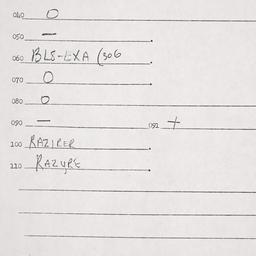 040 O
050 —
060 BLS-EXA (306
070 O
080 O
090 — 091 +
100 RAZIRER
110 RAZURE